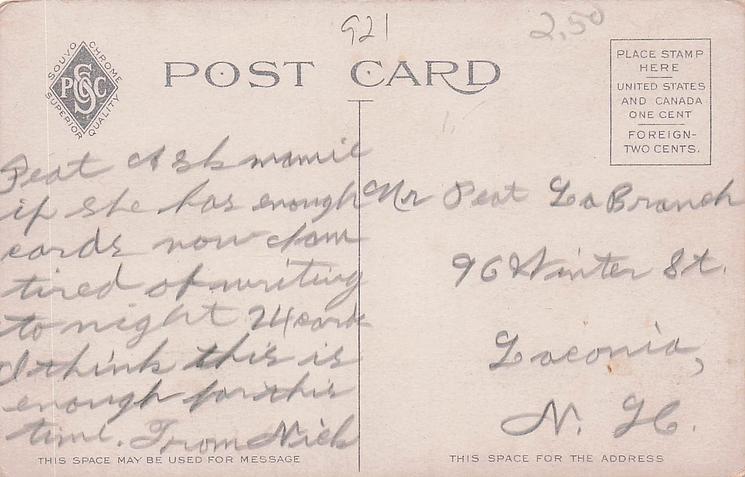 921
2.50
SOUVOCHROME
PCSC
SUPERIOR QUALITY
POST CARD
PLACE STAMP
HERE
UNITED STATES
AND CANADA
ONE CENT
FOREIGN-
TWO CENTS.
Peat Ask mamie
if she has enough
cards now I am
tired of writing
to night 24 cards
I think this is
enough for this
time. From Nick
Mr Peat LaBranch
96 Winter St.
Laconia,
N. H.
THIS SPACE MAY BE USED FOR MESSAGE
THIS SPACE FOR THE ADDRESS